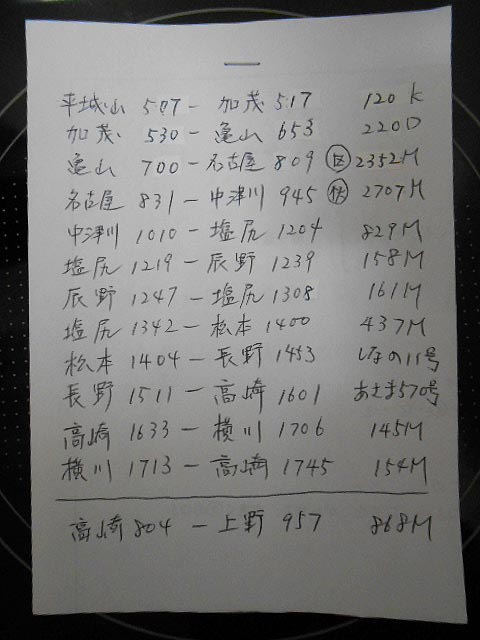 平城山 507 - 加茂 517 120K
加茂 530 - 亀山 653 220D
亀山 700 - 名古屋 809 区 2352M
名古屋 831 - 中津川 945 快 2707M
中津川 1010 - 塩尻 1204 829M
塩尻 1219 - 辰野 1239 158M
辰野 1247 - 塩尻 1308 161M
塩尻 1342 - 松本 1400 437M
松本 1404 - 長野 1453 しなの11号
長野 1511 - 高崎 1601 あさま570号
高崎 1633 - 横川 1706 145M
横川 1713 - 高崎 1745 154M
高崎 804 - 上野 957 868M